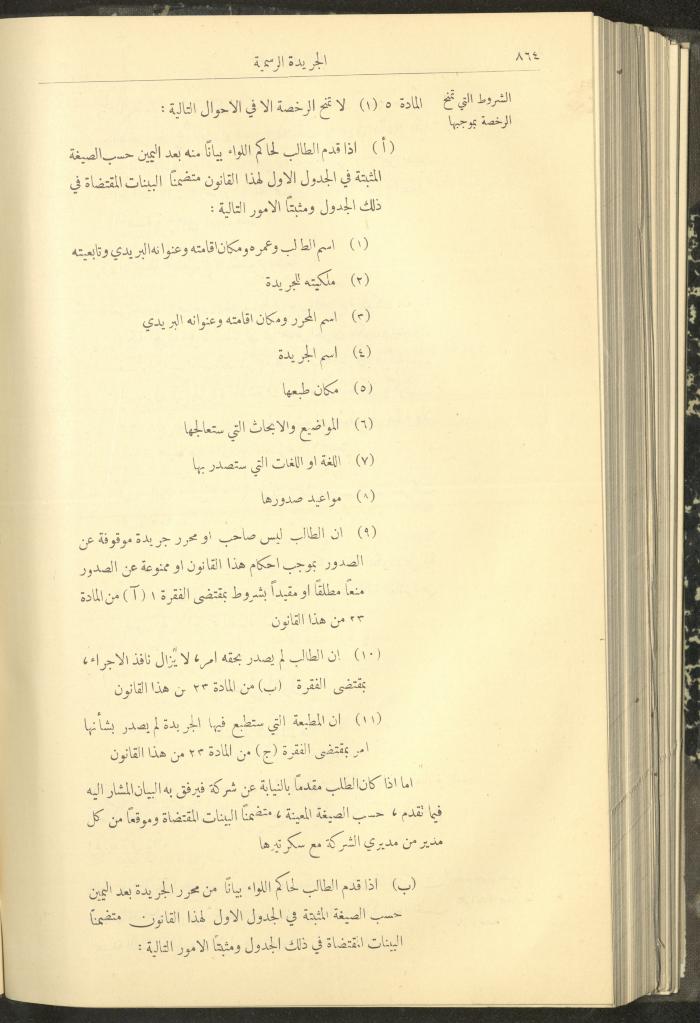 ٨٦٤
الجريدة الرسمية
الشروط التي تمنح
الرخصة بموجبها
المادة ٥ (١) لا تمنح الرخصة الا في الاحوال التالية :
(أ) اذا قدم الطالب لحاكم اللواء بيانًا منه بعد اليمين حسب الصيغة
المثبتة في الجدول الاول لهذا القانون متضمنًا البينات المقتضاة في
ذلك الجدول ومثبتًا الامور التالية :
(١) اسم الطالب وعمره ومكان اقامته وعنوانه البريدي وتابعيته
(٢) ملكيته للجريدة
(٣) اسم المحرر ومكان اقامته وعنوانه البريدي
(٤) اسم الجريدة
(٥) مكان طبعها
(٦) المواضيع والابحاث التي ستعالجها
(٧) اللغة او اللغات التي ستصدر بها
(٨) مواعيد صدورها
(٩) ان الطالب ليس صاحب او محرر جريدة موقوفة عن
الصدور بموجب احكام هذا القانون او ممنوعة عن الصدور
منعًا مطلقًا او مقيدًا بشروط بمقتضى الفقرة ١ (آ) من المادة
٢٣ من هذا القانون
(١٠) ان الطالب لم يصدر بحقه امر، لا يزال نافذ الاجراء،
بمقتضى الفقرة (ب) من المادة ٢٣ من هذا القانون
(١١) ان المطبعة التي ستطبع فيها الجريدة لم يصدر بشأنها
امر بمقتضى الفقرة (ج) من المادة ٢٣ من هذا القانون
اما اذا كان الطلب مقدمًا بالنيابة عن شركة فيرفق به البيان المشار اليه
فيما تقدم، حسب الصيغة المعينة، متضمنًا البينات المقتضاة وموقعًا من كل
مدير من مديري الشركة مع سكرتيرها
(ب) اذا قدم الطالب لحاكم اللواء بيانًا من محرر الجريدة بعد اليمين
حسب الصيغة المثبتة في الجدول الاول لهذا القانون متضمنًا
البينات المقتضاة في ذلك الجدول ومثبتًا الامور التالية :